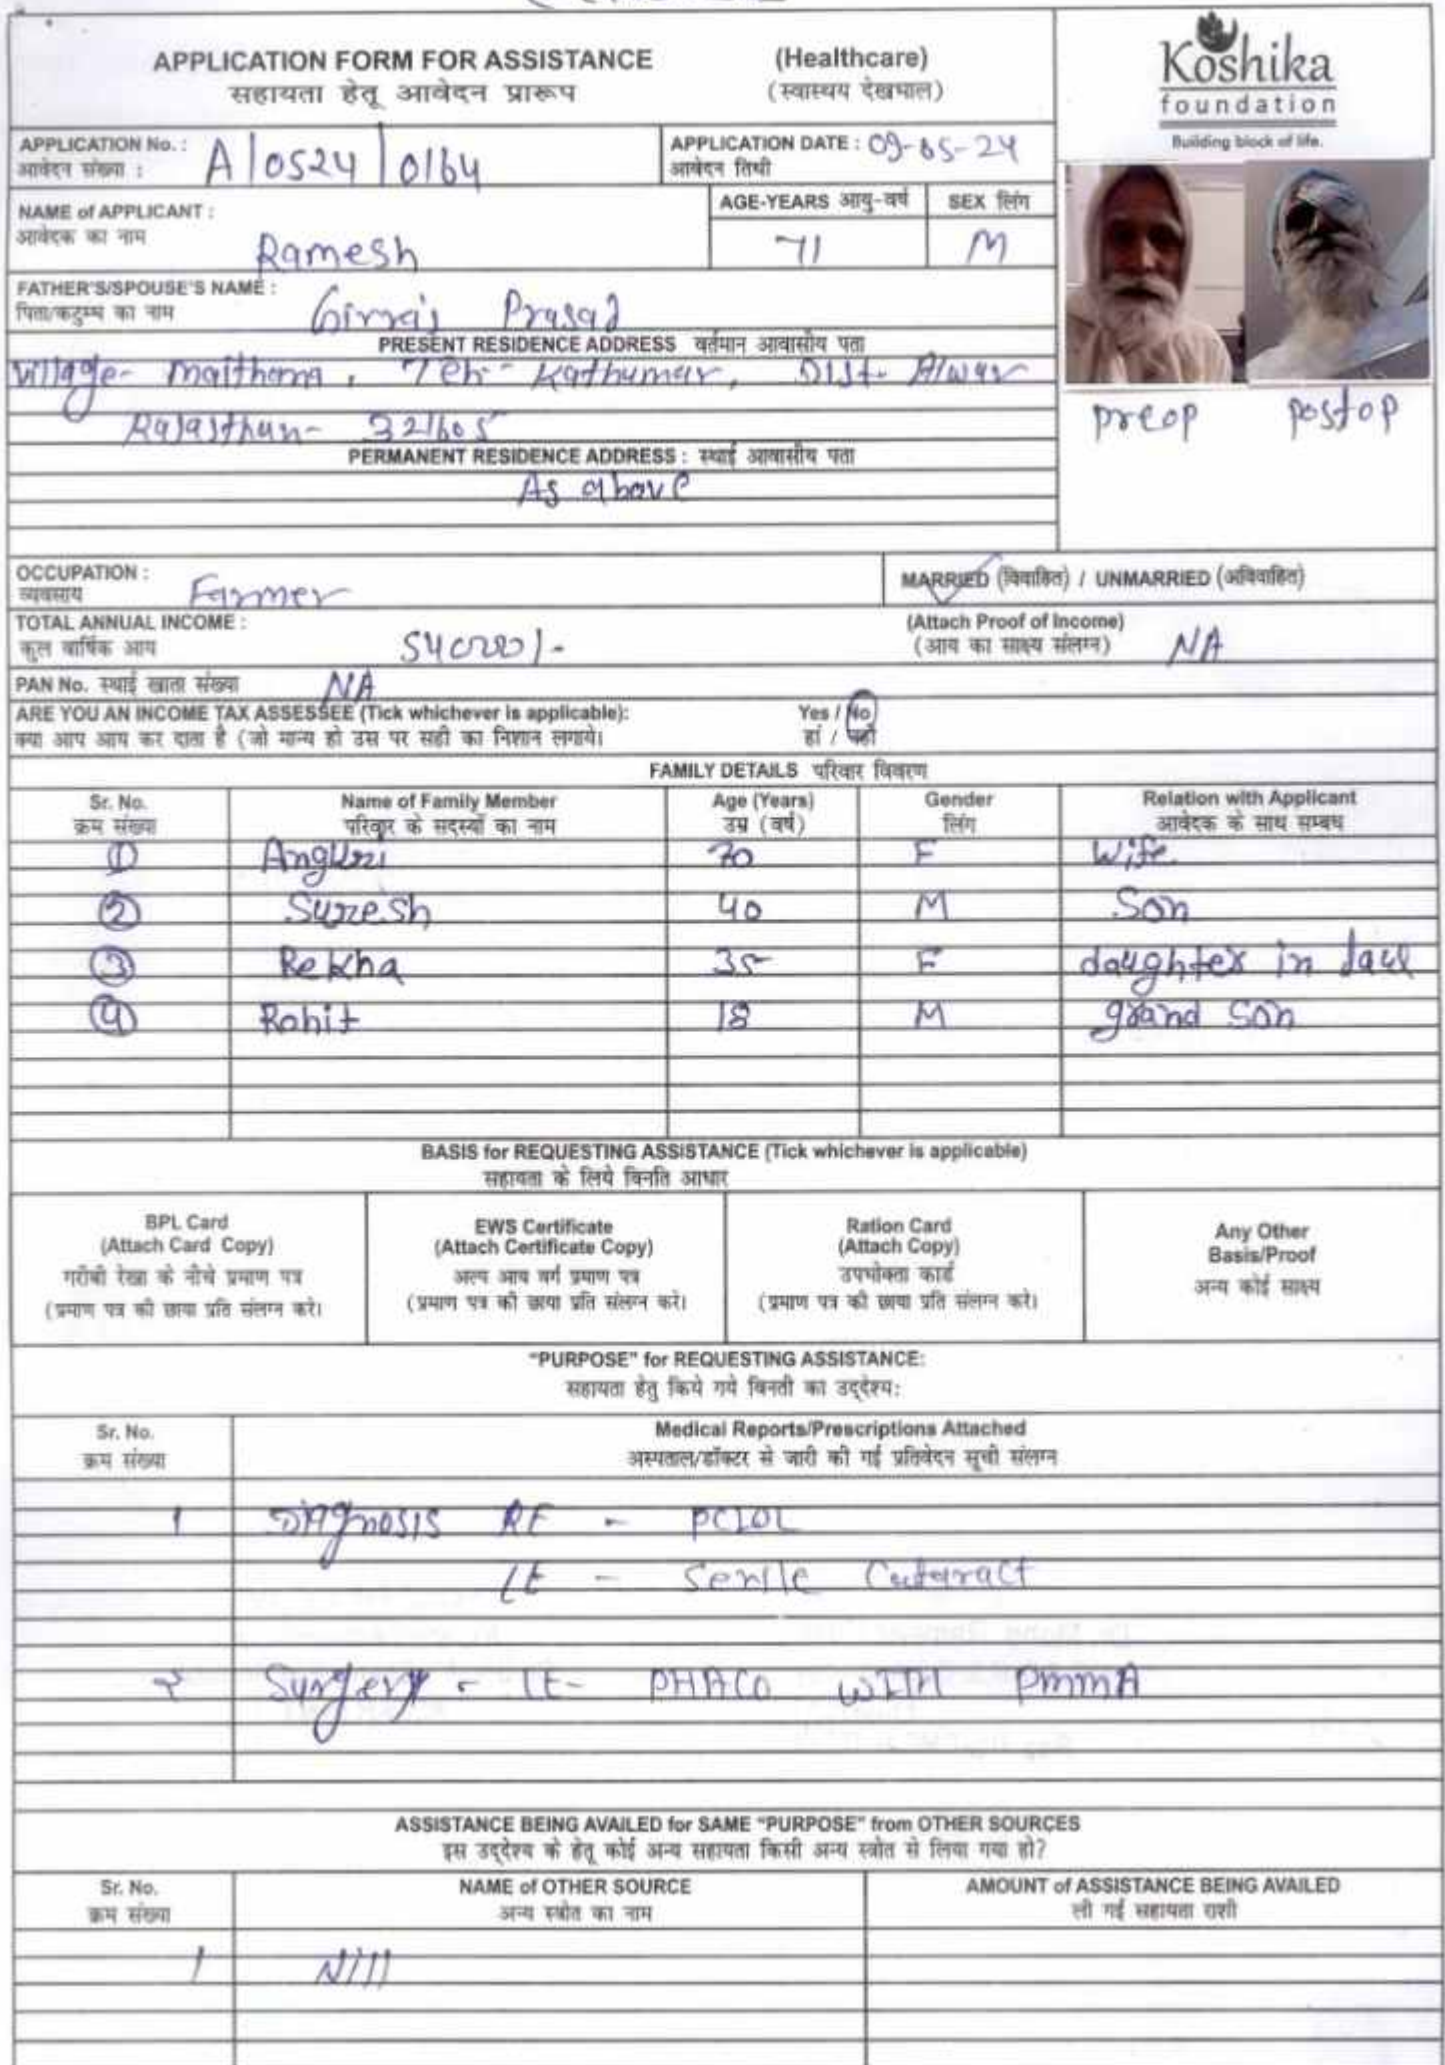 APPLICATION FORM FOR ASSISTANCE (Healthcare)
सहायता हेतू आवेदन प्रारूप (स्वास्थय देखभाल)
Koshika
foundation
Building block of life.
APPLICATION No. : A/0524/0164
आवेदन संख्या :
APPLICATION DATE : 09-05-24
आवेदन तिथी
NAME of APPLICANT :
आवेदक का नाम
Ramesh
AGE-YEARS आयु-वर्ष
71
SEX लिंग
M
FATHER'S/SPOUSE'S NAME :
पिता/कटुम्ब का नाम
Girraj Prasad
PRESENT RESIDENCE ADDRESS वर्तमान आवासीय पता
Village- Maithana, Teh- Kathumar, Dist- Alwar
Rajasthan- 321605
preop postop
PERMANENT RESIDENCE ADDRESS : स्थाई आवासीय पता
As above
OCCUPATION :
व्यवसाय
Farmer
MARRIED (विवाहित) / UNMARRIED (अविवाहित)
TOTAL ANNUAL INCOME :
कुल वार्षिक आय
54000/-
(Attach Proof of Income)
(आय का साक्ष्य संलग्न)
NA
PAN No. स्थाई खाता संख्या NA
ARE YOU AN INCOME TAX ASSESSEE (Tick whichever is applicable): Yes / No
क्या आप आय कर दाता है (जो मान्य हो उस पर सही का निशान लगाये। हां / नहीं
FAMILY DETAILS परिवार विवरण
Sr. No. Name of Family Member Age (Years) Gender Relation with Applicant
क्रम संख्या परिवार के सदस्यों का नाम उम्र (वर्ष) लिंग आवेदक के साथ सम्बध
1 Anguri 70 F Wife
2 Suresh 40 M Son
3 Rekha 35 F daughter in law
4 Rohit 18 M grand son
BASIS for REQUESTING ASSISTANCE (Tick whichever is applicable)
सहायता के लिये विनति आधार
BPL Card
(Attach Card Copy)
गरीबी रेखा के नीचे प्रमाण पत्र
(प्रमाण पत्र की छाया प्रति संलग्न करे।
EWS Certificate
(Attach Certificate Copy)
अल्प आय वर्ग प्रमाण पत्र
(प्रमाण पत्र की छाया प्रति संलग्न करे।
Ration Card
(Attach Copy)
उपभोक्ता कार्ड
(प्रमाण पत्र की छाया प्रति संलग्न करे।
Any Other
Basis/Proof
अन्य कोई साक्ष्य
"PURPOSE" for REQUESTING ASSISTANCE:
सहायता हेतु किये गये विनती का उद्देश्य:
Sr. No. Medical Reports/Prescriptions Attached
क्रम संख्या अस्पताल/डॉक्टर से जारी की गई प्रतिवेदन सूची संलग्न
1 Diagnosis RE - PCIOL
LE - Senile Cataract
2 Surgery - LE- PHACO WITH PMMA
ASSISTANCE BEING AVAILED for SAME "PURPOSE" from OTHER SOURCES
इस उद्देश्य के हेतू कोई अन्य सहायता किसी अन्य स्त्रोत से लिया गया हो?
Sr. No. NAME of OTHER SOURCE AMOUNT of ASSISTANCE BEING AVAILED
क्रम संख्या अन्य स्त्रोत का नाम ली गई सहायता राशी
1 Nill